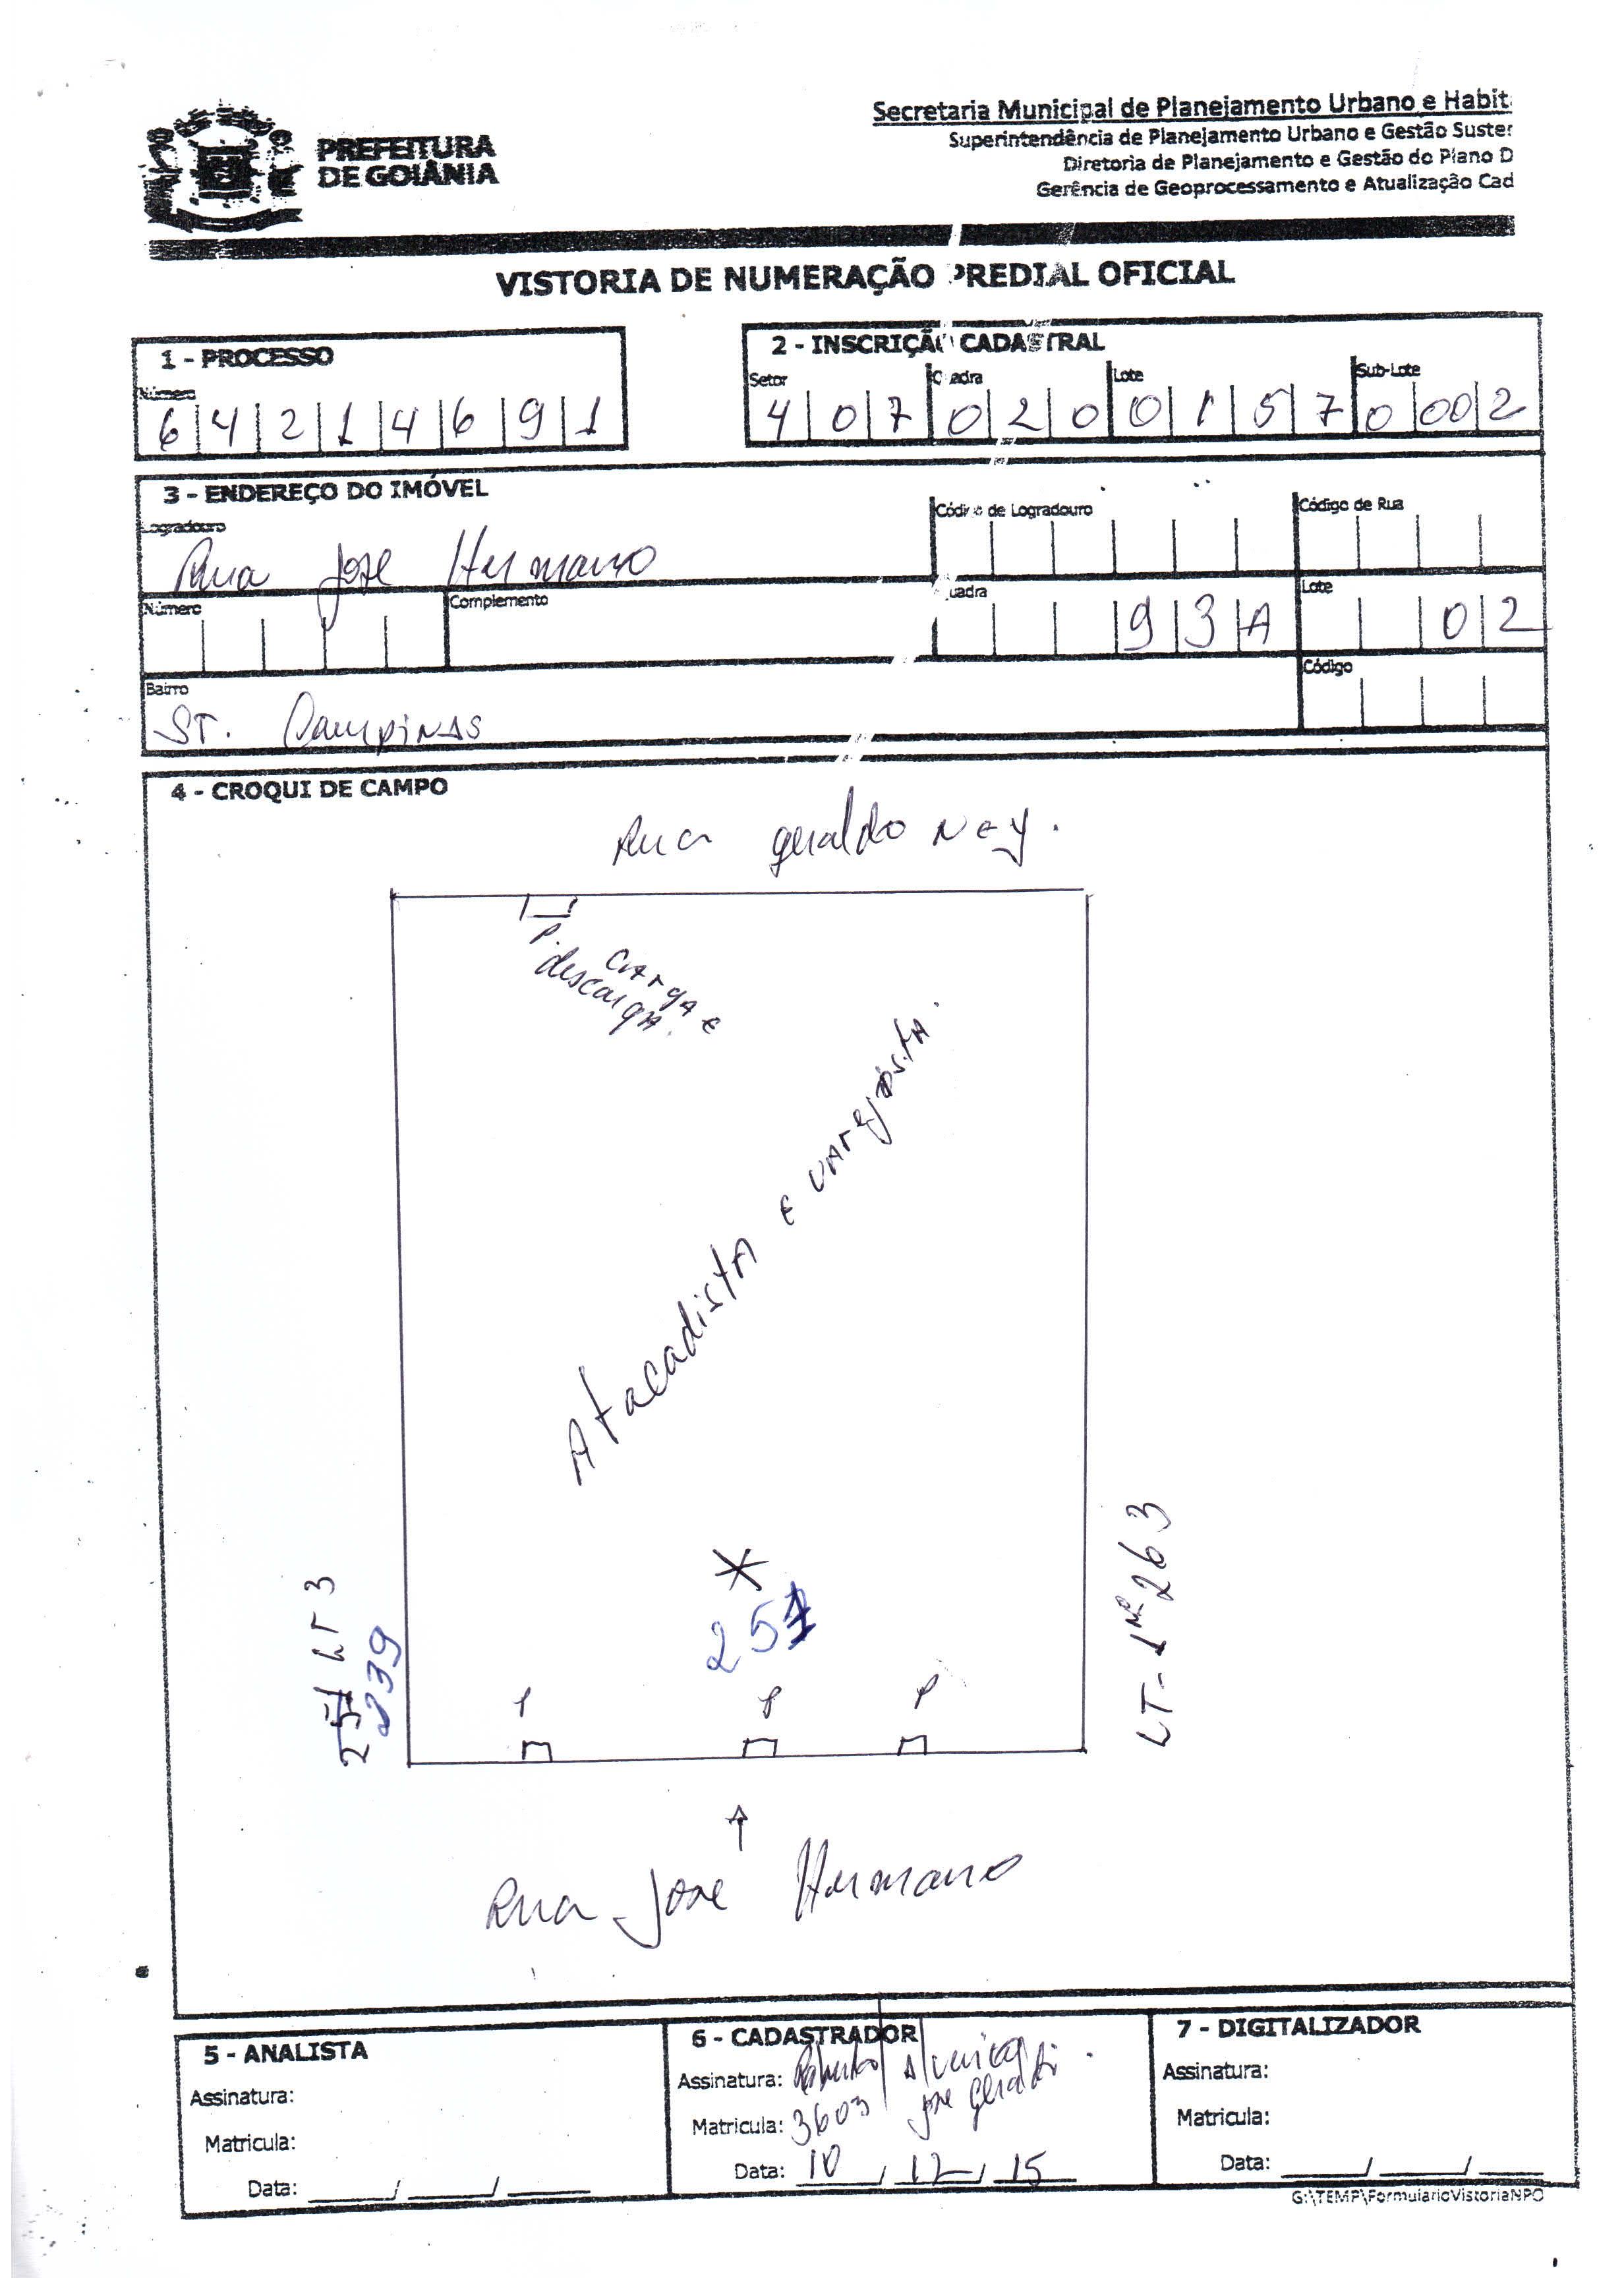 PREFEITURA
DE GOIÂNIA
Secretaria Municipal de Planejamento Urbano e Habit
Superintendência de Planejamento Urbano e Gestão Suster
Diretoria de Planejamento e Gestão do Plano D
Gerência de Geoprocessamento e Atualização Cad
VISTORIA DE NUMERAÇÃO PREDIAL OFICIAL
1 - PROCESSO
Número
6 4 2 1 4 6 9 1
2 - INSCRIÇÃO CADASTRAL
Setor Quadra Lote Sub-Lote
4 0 7 0 2 0 0 1 5 7 0 00 2
3 - ENDEREÇO DO IMÓVEL
Logradouro Código de Logradouro Código de Rua
Rua Jose Hermano
Número Complemento Quadra Lote
9 3 A 0 2
Bairro Código
ST. Campinas
4 - CROQUI DE CAMPO
Rua geraldo Ney.
P. carga e
descarga.
Atacadista e varejista.
*
251
LT 3
239
LT-1 Nº 263
P P P
Rua Jose Hermano
5 - ANALISTA
Assinatura:
Matricula:
Data: ____/____/____
6 - CADASTRADOR
Assinatura:
Matricula: 3603
Data: 10 / 12 / 15
7 - DIGITALIZADOR
Assinatura:
Matricula:
Data: ____/____/____
G:\TEMP\FormularioVistoriaNPO